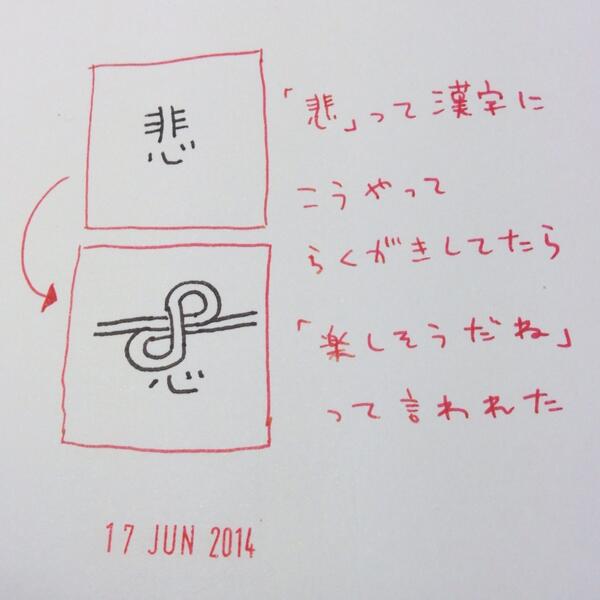 悲
「悲」って漢字に
こうやって
らくがきしてたら
心
「楽しそうだね」
って言われた
17 JUN 2014